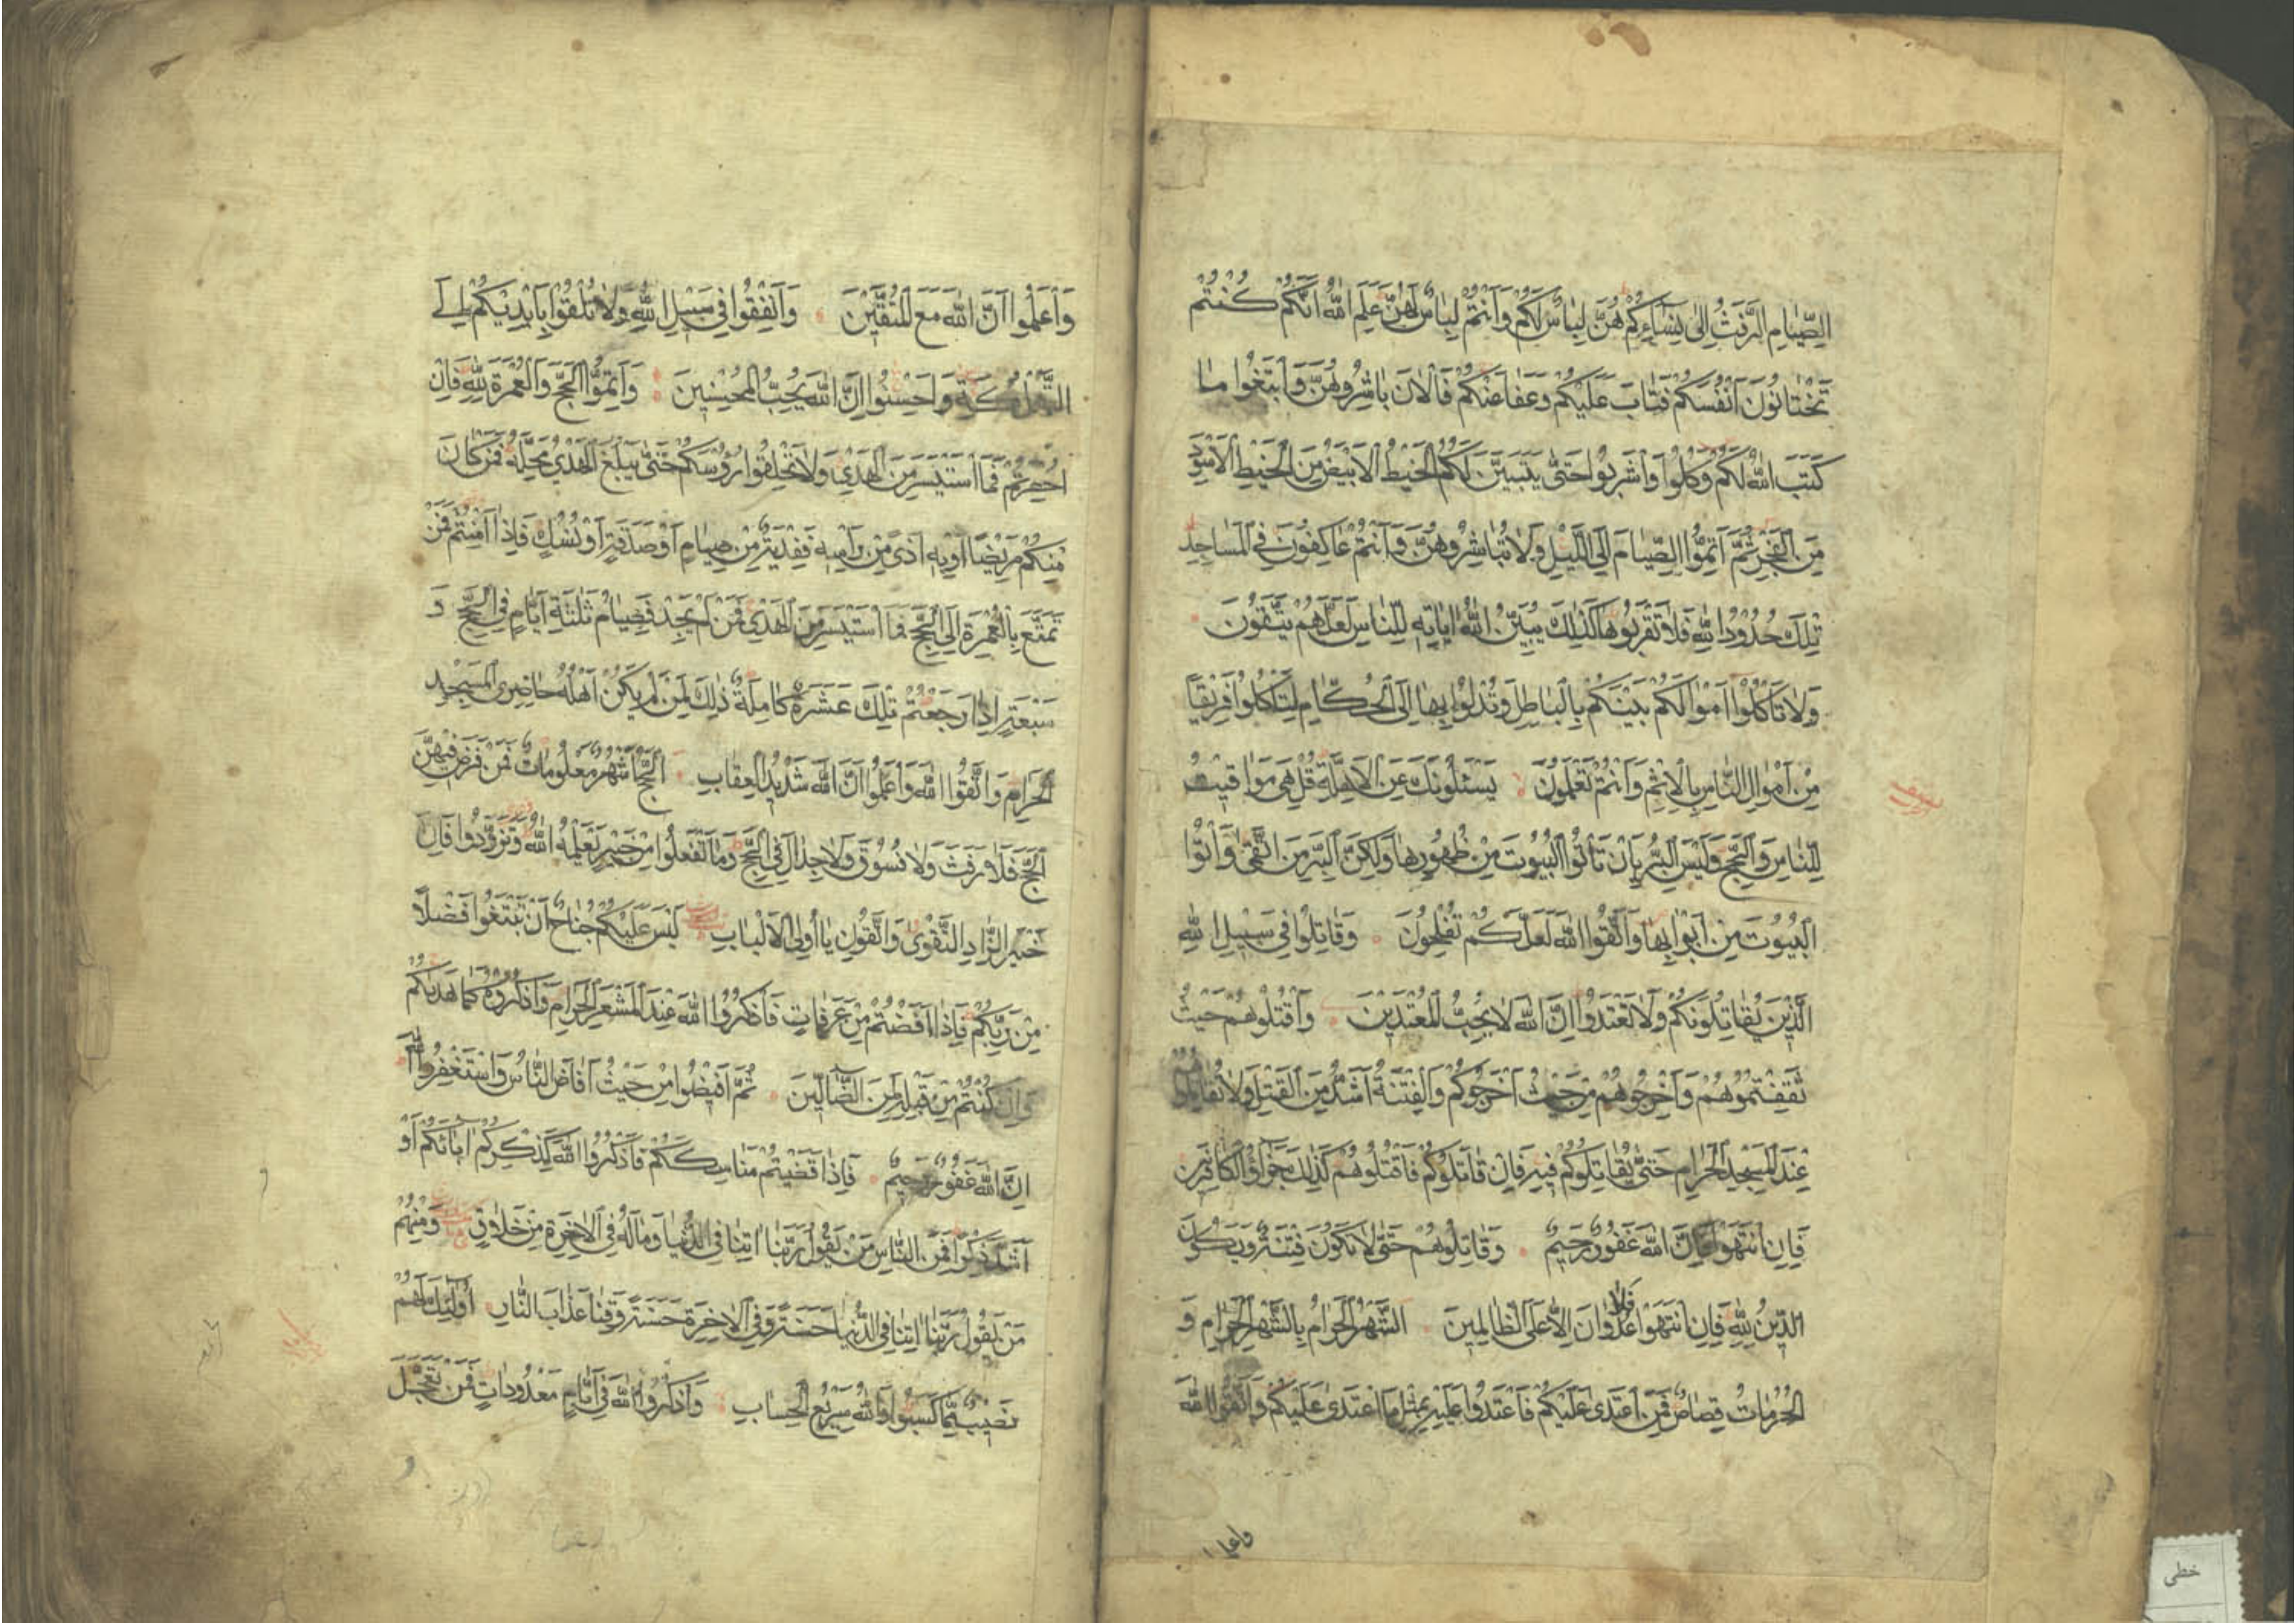 الصِّيَامِ الرَّفَثُ إِلىٰ نِسَاۤئِكُمْ هُنَّ لِبَاسٌ لَكُمْ وَأَنْتُمْ لِبَاسٌ لَهُنَّ عَلِمَ اللهُ أَنَّكُمْ كُنْتُمْ
تَخْتَانُونَ أَنْفُسَكُمْ فَتَابَ عَلَيْكُمْ وَعَفَا عَنْكُمْ فَالْاٰنَ بَاشِرُوهُنَّ وَابْتَغُوا مَا
كَتَبَ اللهُ لَكُمْ وَكُلُوا وَاشْرَبُوا حَتىّٰ يَتَبَيَّنَ لَكُمُ الْخَيْطُ الْاَبْيَضُ مِنَ الْخَيْطِ الْاَسْوَدِ
مِنَ الْفَجْرِ ثُمَّ أَتِمُّوا الصِّيَامَ إِلَى اللَّيْلِ وَلَا تُبَاشِرُوهُنَّ وَأَنْتُمْ عَاكِفُونَ فِي الْمَسَاجِدِ
تِلْكَ حُدُودُ اللهِ فَلَا تَقْرَبُوهَا كَذٰلِكَ يُبَيِّنُ اللهُ اٰيَاتِهِ لِلنَّاسِ لَعَلَّهُمْ يَتَّقُونَ
وَلَا تَأْكُلُوا أَمْوَالَكُمْ بَيْنَكُمْ بِالْبَاطِلِ وَتُدْلُوا بِهَا إِلَى الْحُكَّامِ لِتَأْكُلُوا فَرِيقًا
مِنْ أَمْوَالِ النَّاسِ بِالْاِثْمِ وَأَنْتُمْ تَعْلَمُونَ يَسْئَلُونَكَ عَنِ الْاَهِلَّةِ قُلْ هِيَ مَوَاقِيتُ
لِلنَّاسِ وَالْحَجِّ وَلَيْسَ الْبِرُّ بِأَنْ تَأْتُوا الْبُيُوتَ مِنْ ظُهُورِهَا وَلٰكِنَّ الْبِرَّ مَنِ اتَّقىٰ وَأْتُوا
الْبُيُوتَ مِنْ أَبْوَابِهَا وَاتَّقُوا اللهَ لَعَلَّكُمْ تُفْلِحُونَ وَقَاتِلُوا فِي سَبِيلِ اللهِ
الَّذِينَ يُقَاتِلُونَكُمْ وَلَا تَعْتَدُوا إِنَّ اللهَ لَا يُحِبُّ الْمُعْتَدِينَ وَاقْتُلُوهُمْ حَيْثُ
ثَقِفْتُمُوهُمْ وَأَخْرِجُوهُمْ مِنْ حَيْثُ أَخْرَجُوكُمْ وَالْفِتْنَةُ أَشَدُّ مِنَ الْقَتْلِ وَلَا تُقَاتِلُوهُمْ
عِنْدَ الْمَسْجِدِ الْحَرَامِ حَتىّٰ يُقَاتِلُوكُمْ فِيهِ فَإِنْ قَاتَلُوكُمْ فَاقْتُلُوهُمْ كَذٰلِكَ جَزَاؤُ الْكَافِرِينَ
فَإِنِ انْتَهَوْا فَإِنَّ اللهَ غَفُورٌ رَحِيمٌ وَقَاتِلُوهُمْ حَتىّٰ لَا تَكُونَ فِتْنَةٌ وَيَكُونَ
الدِّينُ لِلّٰهِ فَإِنِ انْتَهَوْا فَلَا عُدْوَانَ إِلَّا عَلَى الظَّالِمِينَ الشَّهْرُ الْحَرَامُ بِالشَّهْرِ الْحَرَامِ وَ
الْحُرُمَاتُ قِصَاصٌ فَمَنِ اعْتَدىٰ عَلَيْكُمْ فَاعْتَدُوا عَلَيْهِ بِمِثْلِ مَا اعْتَدىٰ عَلَيْكُمْ وَاتَّقُوا اللهَ
واعلموا
وَاعْلَمُوا أَنَّ اللهَ مَعَ الْمُتَّقِينَ وَأَنْفِقُوا فِي سَبِيلِ اللهِ وَلَا تُلْقُوا بِأَيْدِيكُمْ إِلَى
التَّهْلُكَةِ وَأَحْسِنُوا إِنَّ اللهَ يُحِبُّ الْمُحْسِنِينَ وَأَتِمُّوا الْحَجَّ وَالْعُمْرَةَ لِلّٰهِ فَإِنْ
أُحْصِرْتُمْ فَمَا اسْتَيْسَرَ مِنَ الْهَدْيِ وَلَا تَحْلِقُوا رُؤُسَكُمْ حَتىّٰ يَبْلُغَ الْهَدْيُ مَحِلَّهُ فَمَنْ كَانَ
مِنْكُمْ مَرِيضًا أَوْ بِهِ أَذًى مِنْ رَأْسِهِ فَفِدْيَةٌ مِنْ صِيَامٍ أَوْ صَدَقَةٍ أَوْ نُسُكٍ فَإِذَا أَمِنْتُمْ فَمَنْ
تَمَتَّعَ بِالْعُمْرَةِ إِلَى الْحَجِّ فَمَا اسْتَيْسَرَ مِنَ الْهَدْيِ فَمَنْ لَمْ يَجِدْ فَصِيَامُ ثَلٰثَةِ أَيَّامٍ فِي الْحَجِّ وَ
سَبْعَةٍ إِذَا رَجَعْتُمْ تِلْكَ عَشَرَةٌ كَامِلَةٌ ذٰلِكَ لِمَنْ لَمْ يَكُنْ أَهْلُهُ حَاضِرِي الْمَسْجِدِ
الْحَرَامِ وَاتَّقُوا اللهَ وَاعْلَمُوا أَنَّ اللهَ شَدِيدُ الْعِقَابِ الْحَجُّ أَشْهُرٌ مَعْلُومَاتٌ فَمَنْ فَرَضَ فِيهِنَّ
الْحَجَّ فَلَا رَفَثَ وَلَا فُسُوقَ وَلَا جِدَالَ فِي الْحَجِّ وَمَا تَفْعَلُوا مِنْ خَيْرٍ يَعْلَمْهُ اللهُ وَتَزَوَّدُوا فَإِنَّ
خَيْرَ الزَّادِ التَّقْوىٰ وَاتَّقُونِ يَا أُولِي الْاَلْبَابِ لَيْسَ عَلَيْكُمْ جُنَاحٌ أَنْ تَبْتَغُوا فَضْلًا
مِنْ رَبِّكُمْ فَإِذَا أَفَضْتُمْ مِنْ عَرَفَاتٍ فَاذْكُرُوا اللهَ عِنْدَ الْمَشْعَرِ الْحَرَامِ وَاذْكُرُوهُ كَمَا هَدٰيكُمْ
وَإِنْ كُنْتُمْ مِنْ قَبْلِهِ لَمِنَ الضَّاۤلِّينَ ثُمَّ أَفِيضُوا مِنْ حَيْثُ أَفَاضَ النَّاسُ وَاسْتَغْفِرُوا اللهَ
إِنَّ اللهَ غَفُورٌ رَحِيمٌ فَإِذَا قَضَيْتُمْ مَنَاسِكَكُمْ فَاذْكُرُوا اللهَ كَذِكْرِكُمْ اٰبَائَكُمْ أَوْ
أَشَدَّ ذِكْرًا فَمِنَ النَّاسِ مَنْ يَقُولُ رَبَّنَا اٰتِنَا فِي الدُّنْيَا وَمَا لَهُ فِي الْاٰخِرَةِ مِنْ خَلَاقٍ وَمِنْهُمْ
مَنْ يَقُولُ رَبَّنَا اٰتِنَا فِي الدُّنْيَا حَسَنَةً وَفِي الْاٰخِرَةِ حَسَنَةً وَقِنَا عَذَابَ النَّارِ أُولٰئِكَ لَهُمْ
نَصِيبٌ مِمَّا كَسَبُوا وَاللهُ سَرِيعُ الْحِسَابِ وَاذْكُرُوا اللهَ فِي أَيَّامٍ مَعْدُودَاتٍ فَمَنْ تَعَجَّلَ
خطى